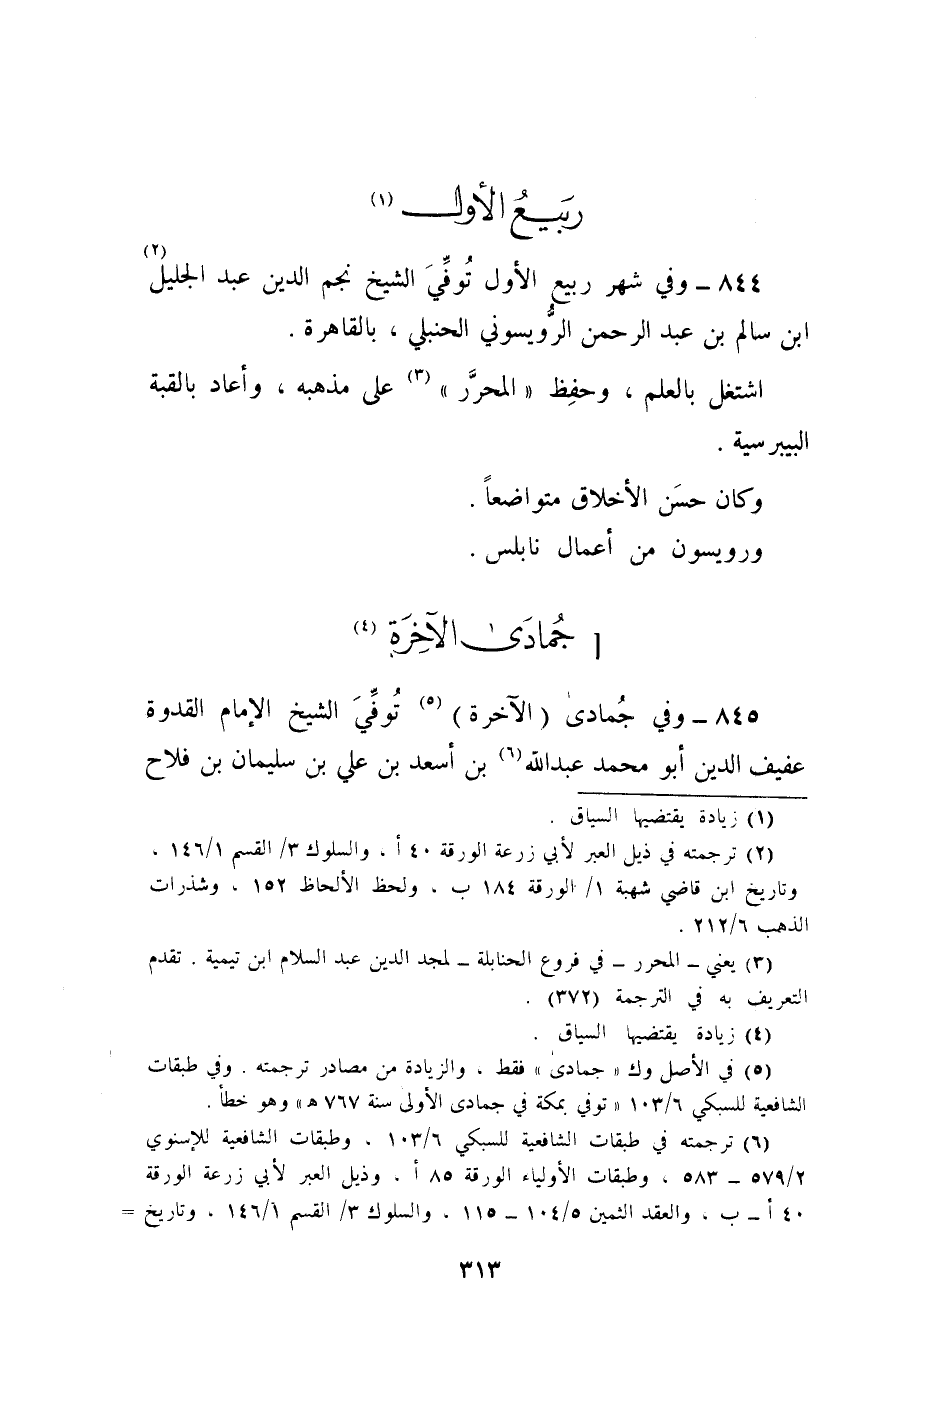 ربَيعُ الأول (١)
٨٤٤ ـ وفي شهر ربيع الأول تُوفِّيَ الشيخ نجم الدين عبد الجليل (٢)
ابن سالم بن عبد الرحمن الرُّويسوني الحنبلي ، بالقاهرة .
اشتغل بالعلم ، وحفِظ « المحرَّر » (٣) على مذهبه ، وأعاد بالقبة
البيبرسية .
وكان حسَن الأخلاق متواضعاً .
ورويسون من أعمال نابلس .
[ جُمادَىٰ الآخِرَة (٤)
٨٤٥ ـ وفي جُمادىٰ ( الآخرة ) (٥) تُوفِّيَ الشيخ الإمام القدوة
عفيف الدين أبو محمد عبدالله (٦) بن أسعد بن علي بن سليمان بن فلاح
(١) زيادة يقتضيها السياق .
(٢) ترجمته في ذيل العبر لأبي زرعة الورقة ٤٠ أ ، والسلوك ٣/ القسم ١٤٦/١ ،
وتاريخ ابن قاضي شهبة ١/ الورقة ١٨٤ ب ، ولحظ الألحاظ ١٥٢ ، وشذرات
الذهب ٢١٢/٦ .
(٣) يعني ـ المحرر ـ في فروع الحنابلة ـ لمجد الدين عبد السلام ابن تيمية . تقدم
التعريف به في الترجمة (٣٧٢) .
(٤) زيادة يقتضيها السياق .
(٥) في الأصل وك « جمادىٰ » فقط ، والزيادة من مصادر ترجمته . وفي طبقات
الشافعية للسبكي ١٠٣/٦ « توفي بمكة في جمادى الأولى سنة ٧٦٧ ه » وهو خطأ .
(٦) ترجمته في طبقات الشافعية للسبكي ١٠٣/٦ ، وطبقات الشافعية للإسنوي
٥٧٩/٢ ـ ٥٨٣ ، وطبقات الأولياء الورقة ٨٥ أ ، وذيل العبر لأبي زرعة الورقة
٤٠ أ ـ ب ، والعقد الثمين ١٠٤/٥ ـ ١١٥ ، والسلوك ٣/ القسم ١٤٦/١ ، وتاريخ =
٣١٣